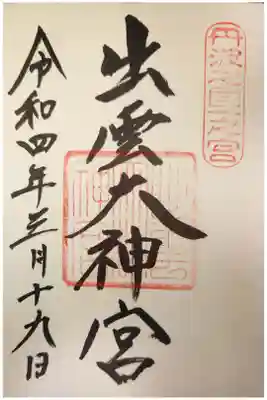 丹波國一之宮
出雲大神宮
令和四年三月十九日